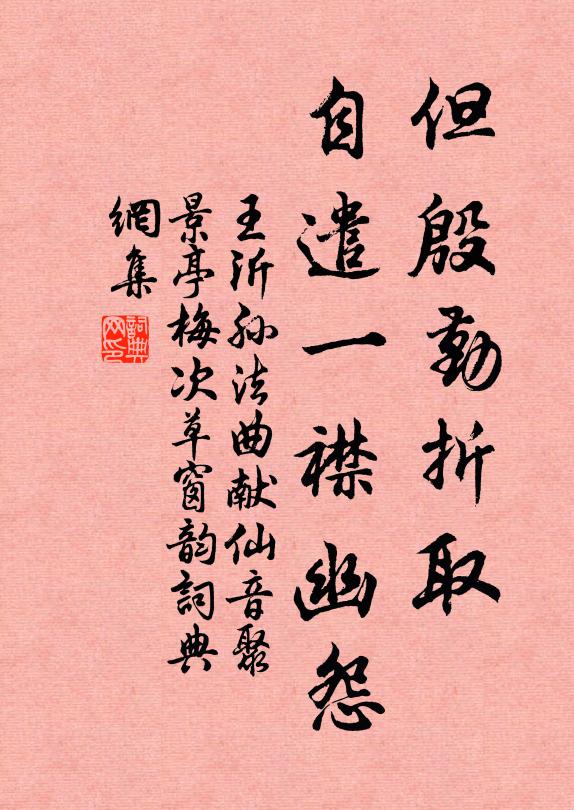 但殷勤折取
自遣一襟幽怨
王沂孫法曲献仙音聚
景亭梅次草窗韵詞典
網集
詞典
网印